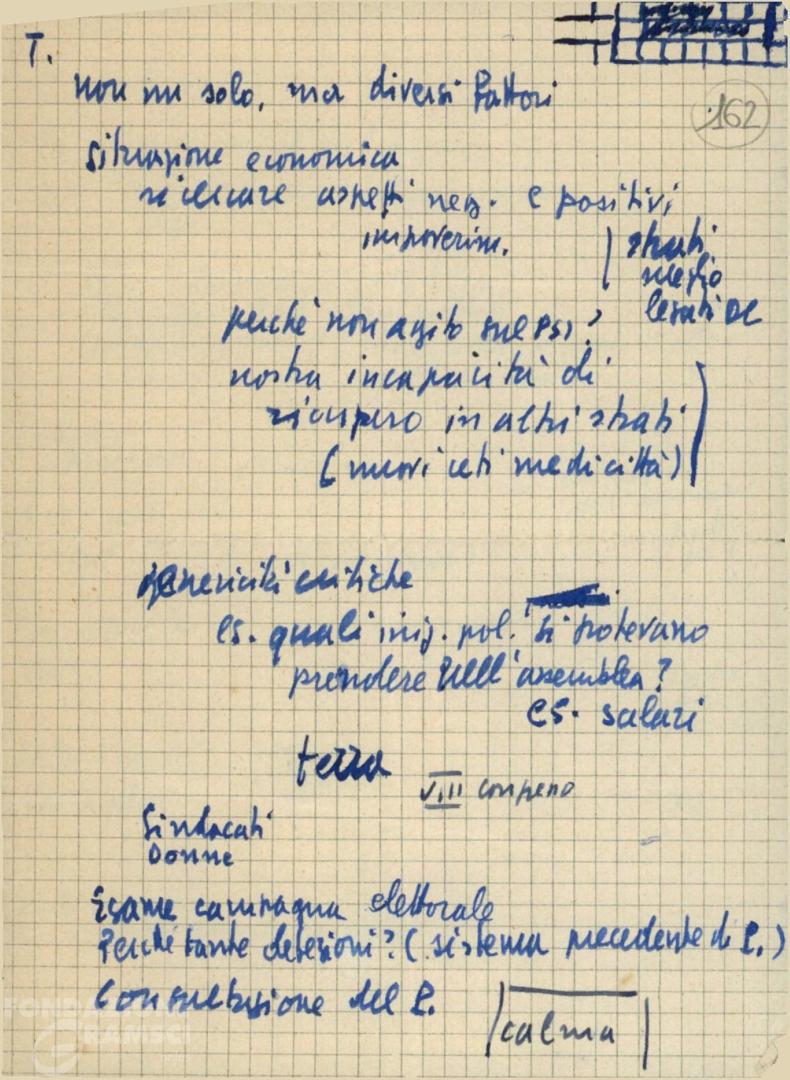 T.
162
non un solo, ma diversi fattori
situazione economica
ricercare aspetti neg. e positivi
impoverim.
strati
medio
legati DC
perché non agito sul PSI?
nostra incapacità di
recupero in altri strati
(nuovi ceti medi città)
genericità critiche
es. quali iniz. pol. si potevano
prendere nell'assemblea?
es. salari
terra
VIII congresso
Sindacati
Donne
Esame campagna elettorale
Perché tante defezioni? (sistema precedente di P.)
Consultazione del P.
calma
FONDAZIONE
GRAMSCI